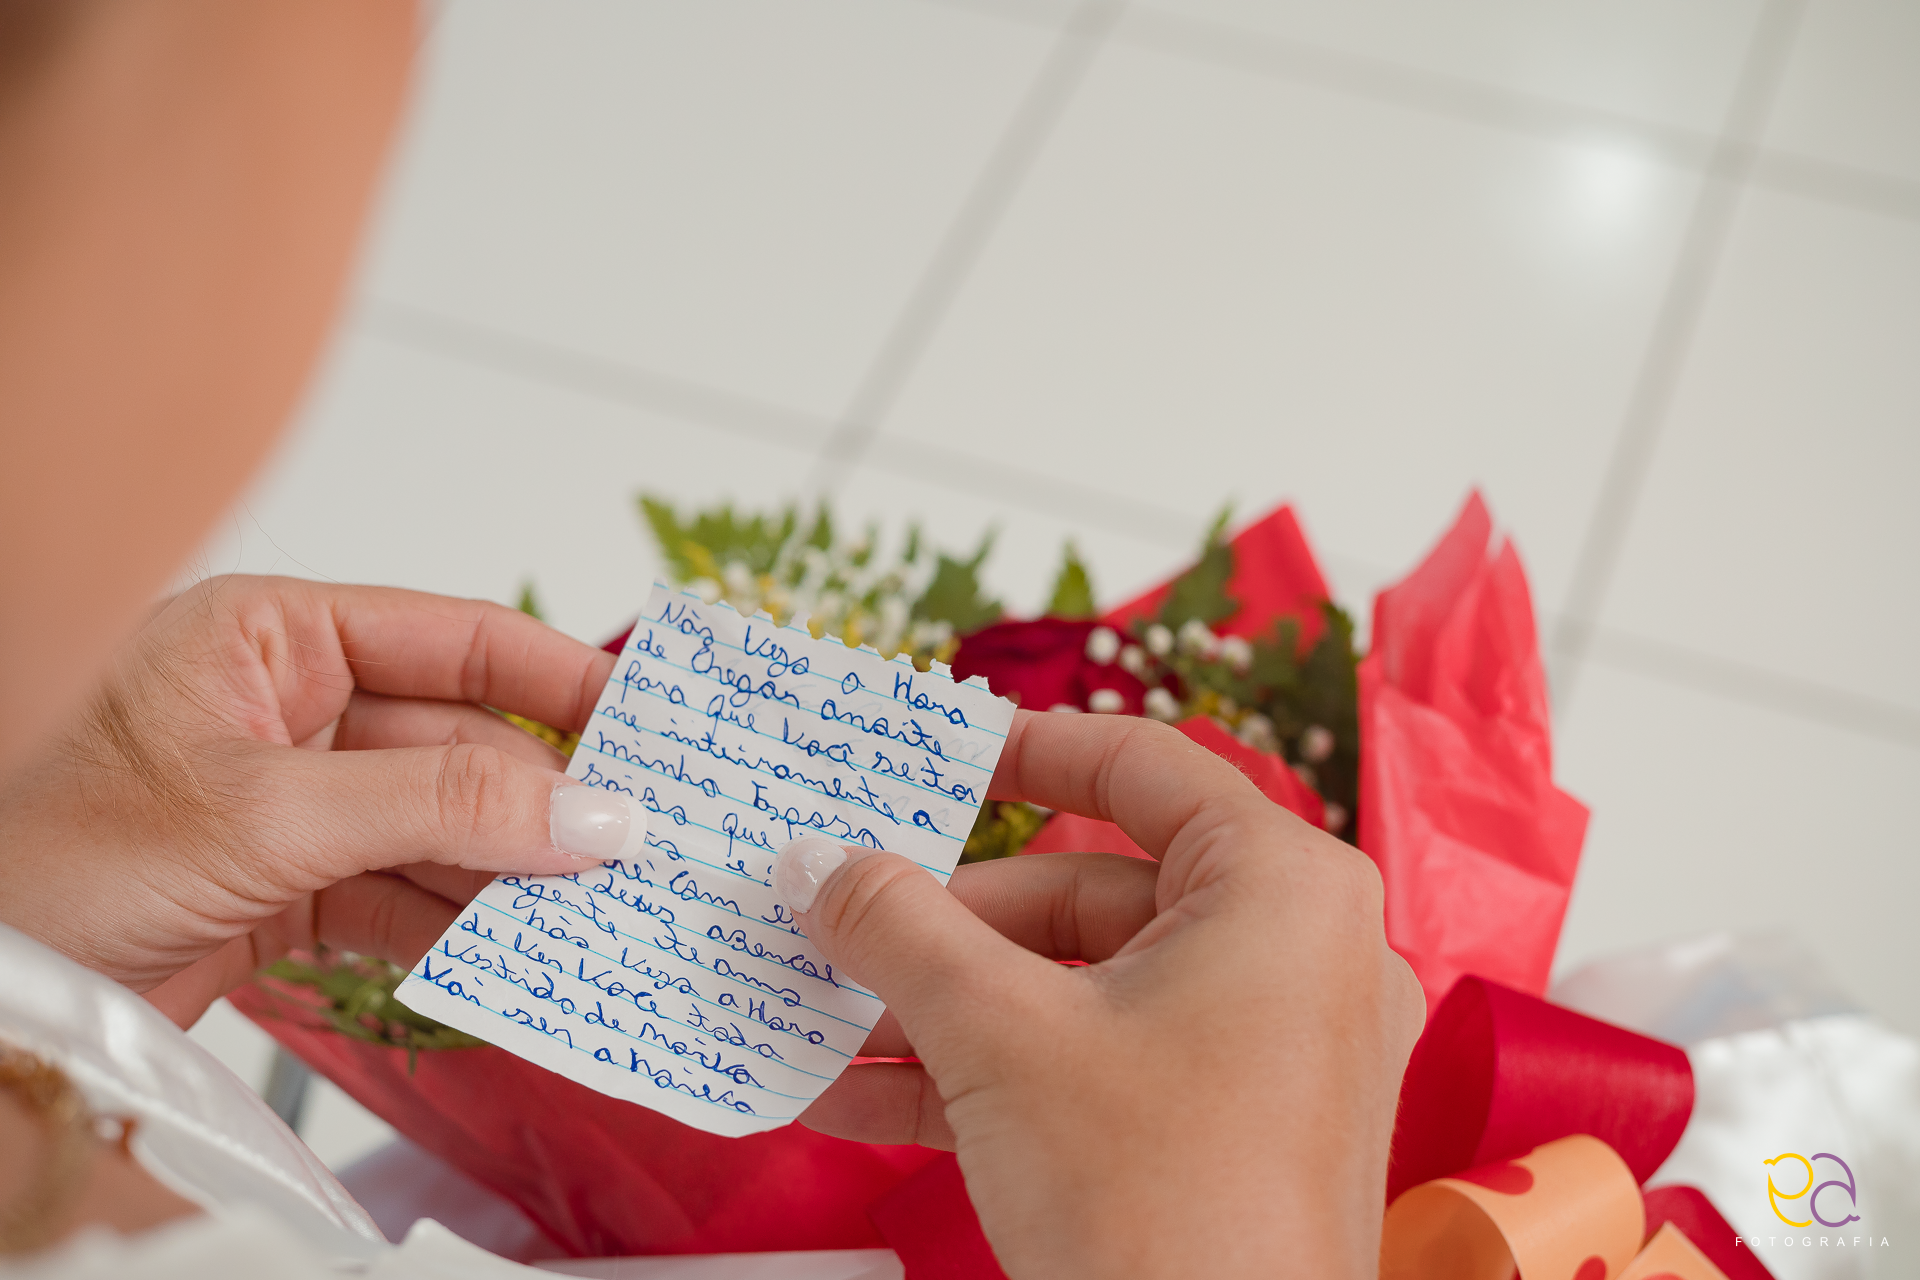 Não Vejo a Hora
de Chegar anoite
para que você se to
ne inteiramente a
minha Esposa
saiba que
e
rei Com
e deus abençoe
agente te amo
não Vejo a Hora
de Ver Você toda
Vestida de noiva
Vai ser a noiva
ea
FOTOGRAFIA